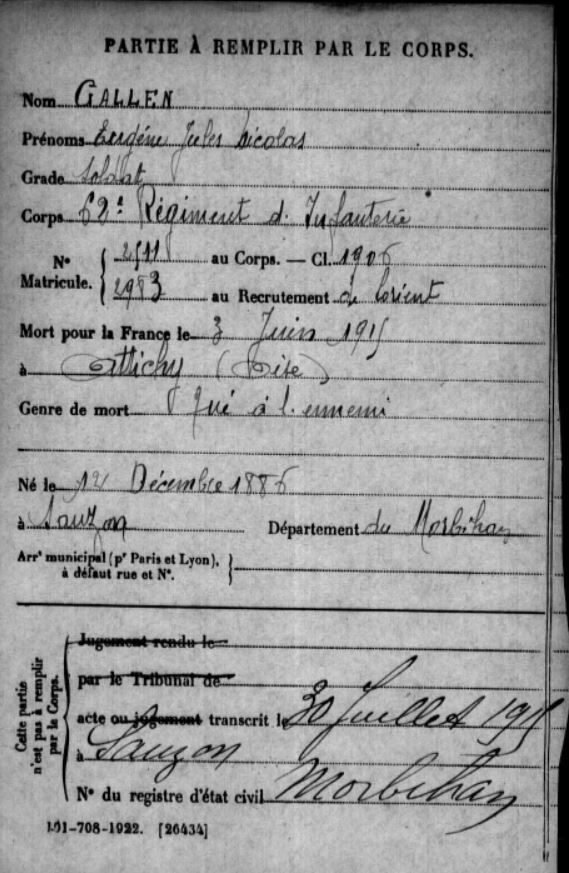 PARTIE À REMPLIR PAR LE CORPS.
Nom GALLEN
Prénoms Eugène Jules Nicolas
Grade Soldat
Corps 62e Régiment d'Infanterie
N° Matricule. { 2511 au Corps. — Cl. 1906
2983 au Recrutement de Lorient
Mort pour la France le 3 Juin 1915
à Attichy (Oise)
Genre de mort Tué à l'ennemi
Né le 12 Décembre 1886
à Sauzon Département du Morbihan
Arrt municipal (pr Paris et Lyon),
à défaut rue et N°.
Cette partie
n'est pas à remplir
par le Corps.
Jugement rendu le
par le Tribunal de
acte ou jugement transcrit le 30 Juillet 1915
à Sauzon
N° du registre d'état civil Morbihan
101-708-1922. [26434]